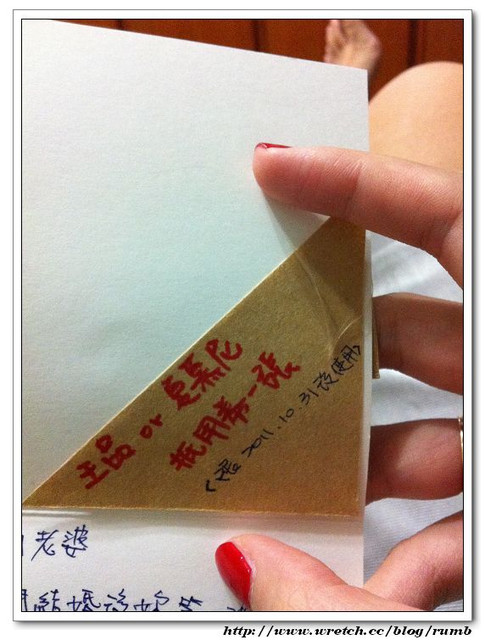 王品 or 夏慕尼
抵用券一張
(限2011.10.31後使用)
老婆
結婚
http://www.wretch.cc/blog/rumb